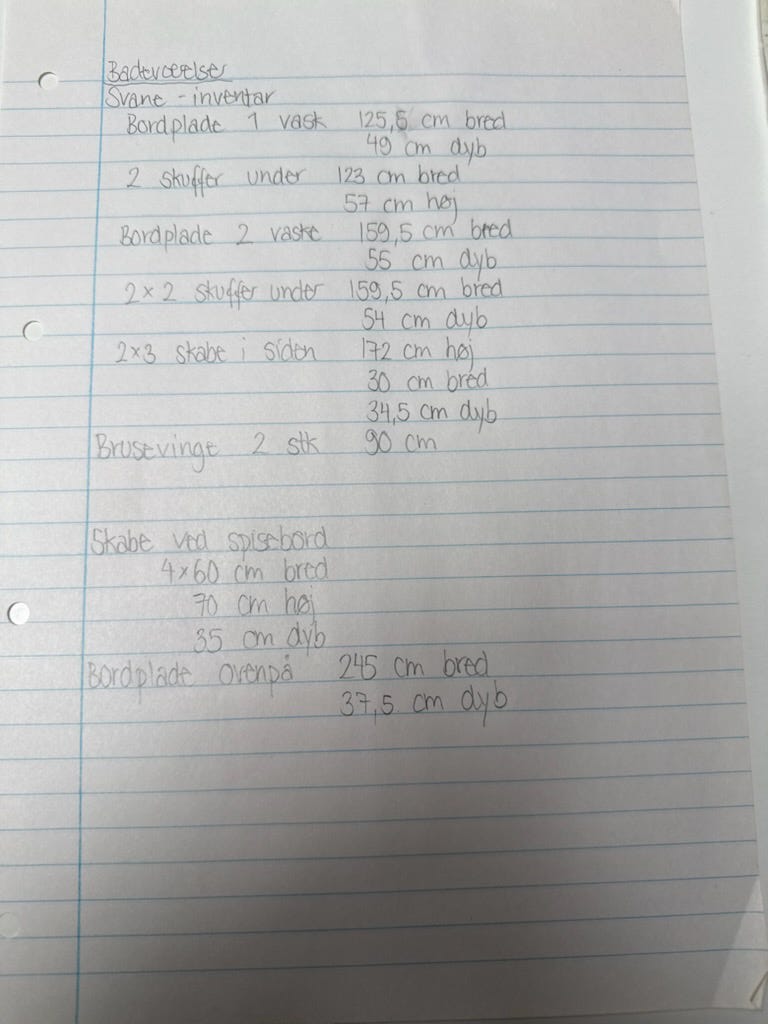 Badeværelser
Svane - inventar
Bordplade 1 vask 125,5 cm bred
49 cm dyb
2 skuffer under 123 cm bred
57 cm høj
Bordplade 2 vaske 159,5 cm bred
55 cm dyb
2×2 skuffer under 159,5 cm bred
54 cm dyb
2×3 skabe i siden 172 cm høj
30 cm bred
34,5 cm dyb
Brusevinge 2 stk 90 cm
Skabe ved spisebord
4×60 cm bred
70 cm høj
35 cm dyb
Bordplade ovenpå 245 cm bred
37,5 cm dyb